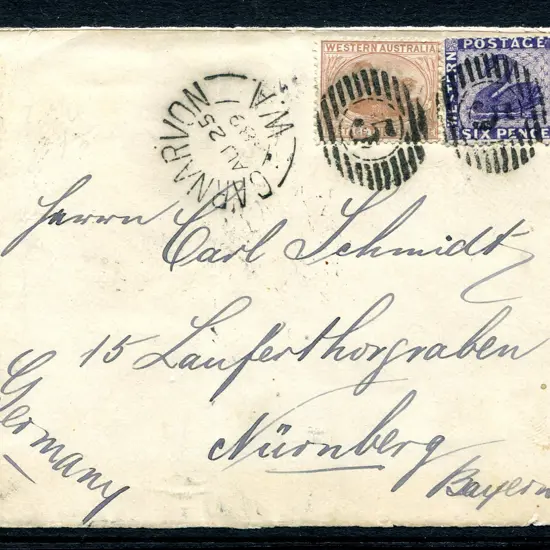 WESTERN AUSTRALIA
POSTAGE
WESTERN
SIX PENCE
CARNARVON W.A.
AU 25
89
Herrn
Carl Schmidt
15 Lauferthorgraben
Nürnberg
Bayern
Germany